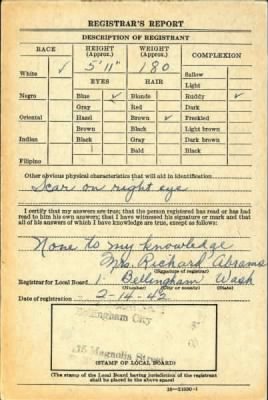 REGISTRAR'S REPORT
DESCRIPTION OF REGISTRANT
RACE HEIGHT (Approx.) WEIGHT (Approx.) COMPLEXION
5' 11" 180
White ✓ Sallow
EYES HAIR Light
Negro Blue ✓ Blonde Ruddy ✓
Gray Red Dark
Oriental Hazel Brown ✓ Freckled
Brown Black Light brown
Indian Black Gray Dark brown
Bald Black
Filipino
Other obvious physical characteristics that will aid in identification
Scar on right eye
I certify that my answers are true; that the person registered has read or has had
read to him his own answers; that I have witnessed his signature or mark and that
all of his answers of which I have knowledge are true, except as follows:
None to my knowledge
Mrs. Richard Abrams
(Signature of registrar)
Registrar for Local Board 1 Bellingham Wash
(Number) (City or county) (State)
Date of registration 2-14-42
Bellingham City
Magnolia Street
(STAMP OF LOCAL BOARD)
(The stamp of the Local Board having jurisdiction of the registrant
shall be placed in the above space)